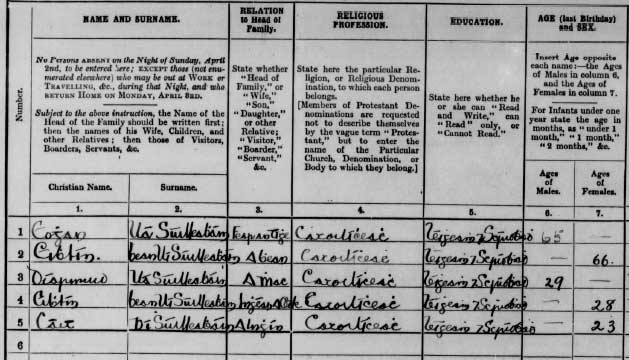 NAME AND SURNAME.
RELATION to Head of Family.
RELIGIOUS PROFESSION.
EDUCATION.
AGE (last Birthday) and SEX.
Number.
No Persons ABSENT on the Night of Sunday, April
2nd, to be entered here; EXCEPT those (not enu-
merated elsewhere) who may be out at WORK or
TRAVELLING, &c., during that Night, and who
RETURN HOME ON MONDAY, APRIL 3RD.
Subject to the above instruction, the Name of the
Head of the Family should be written first;
then the names of his Wife, Children, and
other Relatives; then those of Visitors,
Boarders, Servants, &c.
State whether
"Head of
Family," or
"Wife,"
"Son,"
"Daughter,"
or other
Relative;
"Visitor,"
"Boarder,"
"Servant,"
&c.
State here the particular Re-
ligion, or Religious Denom-
ination, to which each person
belongs.
[Members of Protestant De-
nominations are requested
not to describe themselves
by the vague term "Protes-
tant," but to enter the
name of the Particular
Church, Denomination, or
Body to which they belong.]
State here whether he
or she can "Read
and Write," can
"Read" only, or
"Cannot Read."
Insert Age opposite
each name:—the Ages
of Males in column 6,
and the Ages of
Females in column 7.
For Infants under one
year state the age in
months, as "under 1
month," "1 month,"
"2 months," &c.
Christian Name.
Surname.
Ages of Males.
Ages of Females.
1. 2. 3. 4. 5. 6. 7.
1 Eoġan Ua Súilleabáin 65 —
2 Eiblín bean Uí Súilleabáin A bean — 66.
3 Diarmuid Ua Súilleabáin A mac 29 —
4 Eiblín bean Uí Súilleabáin — 28
5 Cáit Ní Súilleabáin — 23
6